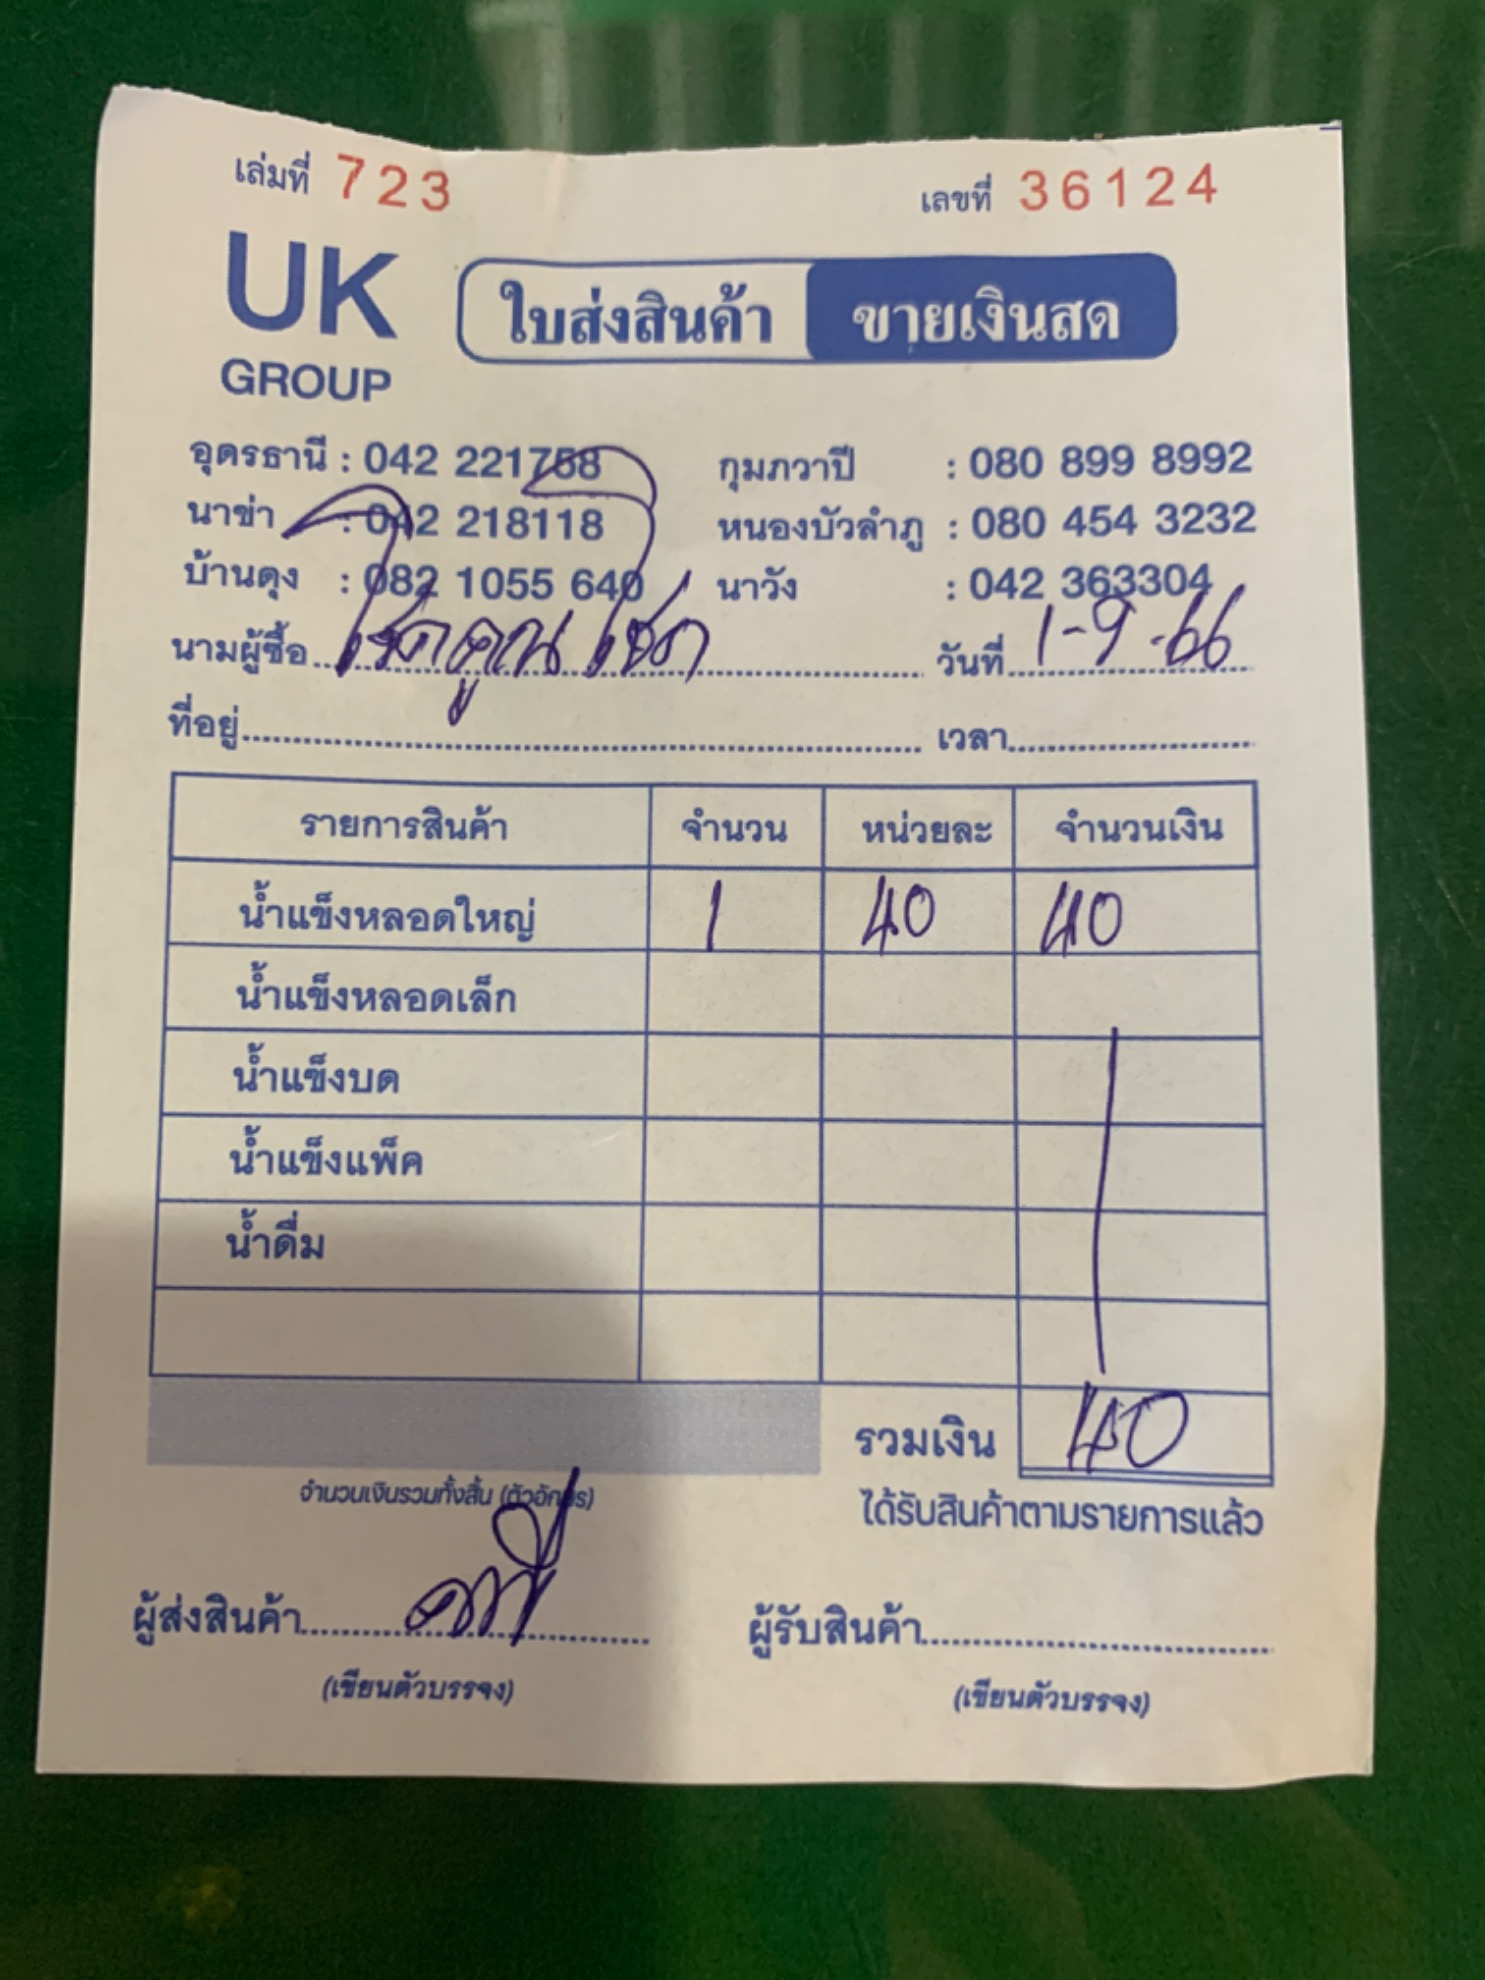 เล่มที่ 723 เลขที่ 36124
UK
GROUP
ใบส่งสินค้า ขายเงินสด
อุดรธานี : 042 221758 กุมภวาปี : 080 899 8992
นาข่า : 042 218118 หนองบัวลำภู : 080 454 3232
บ้านดุง : 082 1055 640 นาวัง : 042 363304
นามผู้ซื้อ โชคคูณโชค วันที่ 1-9-66
ที่อยู่ เวลา
รายการสินค้า จำนวน หน่วยละ จำนวนเงิน
น้ำแข็งหลอดใหญ่ 1 40 40
น้ำแข็งหลอดเล็ก
น้ำแข็งบด
น้ำแข็งแพ็ค
น้ำดื่ม
รวมเงิน 40
จำนวนเงินรวมทั้งสิ้น (ตัวอักษร)
ได้รับสินค้าตามรายการแล้ว
ผู้ส่งสินค้า ผู้รับสินค้า
(เขียนตัวบรรจง) (เขียนตัวบรรจง)